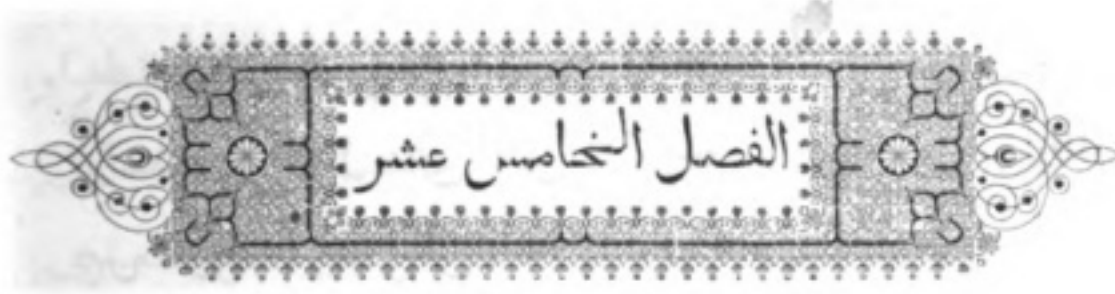 الفصل الخامس عشر